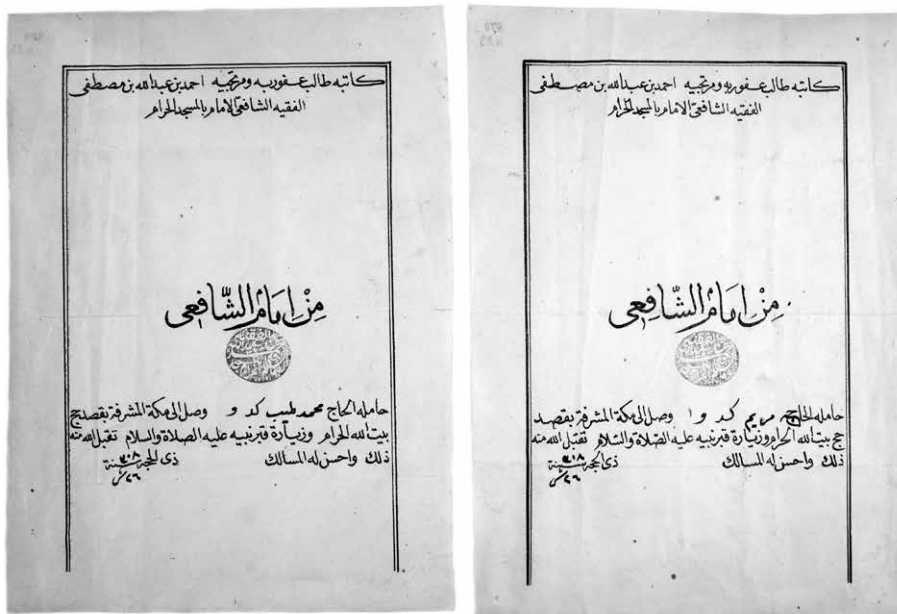 كاتبه طالب عفو ربه ومرتجيه احمد بن عبدالله بن مصطفى
الفقيه الشافعى الامام بالمسجد الحرام
مِنْ اِمَامْ الشّافِعى
حامله الحاج محمد طيب كد و وصل الى مكة المشرفة بقصد حج
بيت الله الحرام وزيارة قبر نبيه عليه الصلاة والسلام تقبل الله منه
ذلك واحسن له المسالك ذى الحجة سنة
٢٦
كاتبه طالب عفو ربه ومرتجيه احمد بن عبدالله بن مصطفى
الفقيه الشافعى الامام بالمسجد الحرام
مِنْ اِمَامْ الشّافِعى
حامله مريم كد و ا وصل الى مكة المشرفة بقصد
حج بيت الله الحرام وزيارة قبر نبيه عليه الصلاة والسلام تقبل الله منه
ذلك واحسن له المسالك ذى الحجة سنة
٢٦